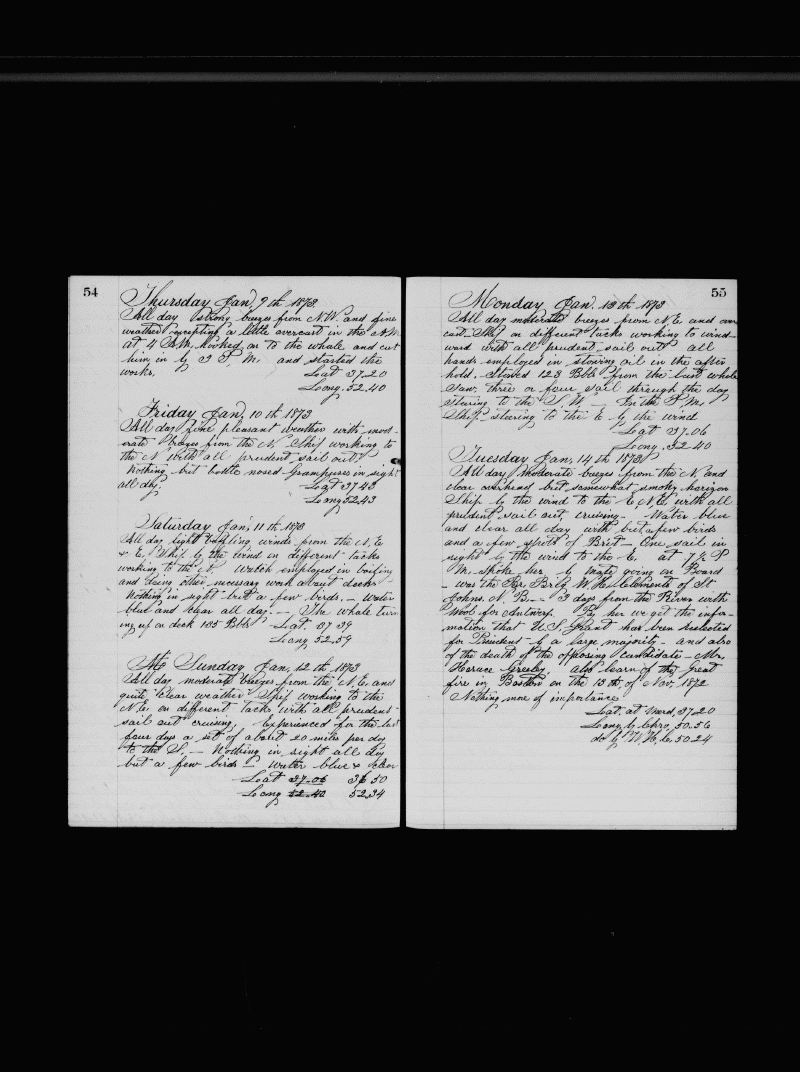 54
Thursday Jan, 9th 1873
All day strong breezes from N.W. and fine
weather excepting a little overcast in the A.M.
at 4 A.M. hooked on to the whale and cut
him in by 3 P.M. and started the
works.
Lat 37.20
Long. 52.40
Friday Jan, 10th 1873
All day fine pleasant weather with mod-
erate breezes from the N. Ship working to
the N with all prudent sail out.
Nothing but bottle nosed Grampuses in sight
all day
Lat 37 43
Long 52.43
Saturday Jan, 11th 1873
All day light baffling winds from the N.E
& E. Ship by the wind on different tacks
working to the N Watch employed in boiling
and doing other necessary work about decks
Nothing in sight but a few birds. – Water
blue and clear all day. – The whale turn
ing up on deck 135 Bbls Lat. 37 39
Long 52.59
Sunday Jan, 12th 1873
All day moderate breezes from the N.E. and
quite clear weather Ship working to the
N.E. on different tacks with all prudent
sail out cruising. Experienced for the last
four days a set of about 20 miles per day
to the S. – Nothing in sight all day
but a few birds – Water blue & clear
Lat 37.06 36 50
Long 52.40 52.34
55
Monday Jan, 13th 1873
All day moderate breezes from N.E. and over
cast. Ship on different tacks working to wind-
ward with all prudent sail out all
hands employed in stowing oil in the after
hold. Stowed 123 Bbls from the last whale
Saw three or four sail through the day
steering to the S W – In the P.M.
Ship steering to the E by the wind
Lat 37.06
Long. 52 40
Tuesday Jan, 14th 1873
All day Moderate breezes from the N. and
clear overhead but somewhat smoky horizon
Ship by the wind to the E.N.E. with all
prudent sail out, cruising – Water blue
and clear all day with but a few birds
and a few spots of Brit – One sail in
sight by the wind to the E. at 7½ P
M. spoke her by Mate going on Board
– was the Br. Brig W.H. Clements of St
Johns. N B. – 3 days from the River with
Wool for Antwerp. By her we get the infor-
mation that U S Grant has been reelected
for President by a large majority – and also
of the death of the opposing Candidate – Mr.
Horace Greeley also learn of the great
fire in Boston on the 13th of Nov, 1872
Nothing more of importance
Lat. at Merd, 37.20
Long by Chro, 50.56
do by W.H.C. 50 24